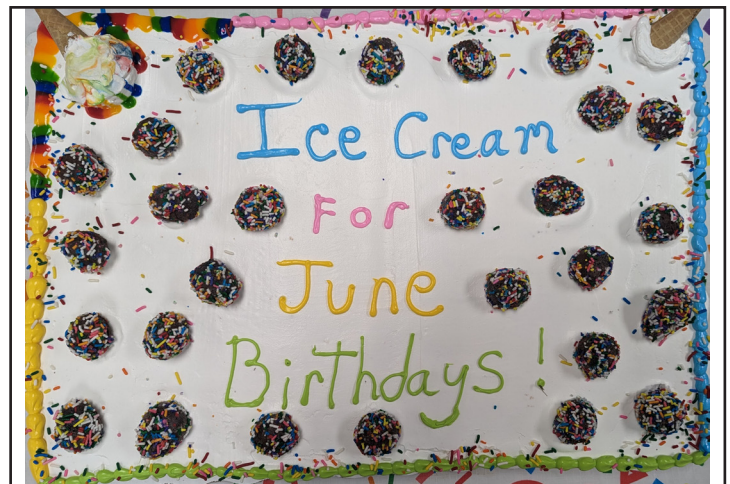 Ice Cream
For
June
Birthdays!